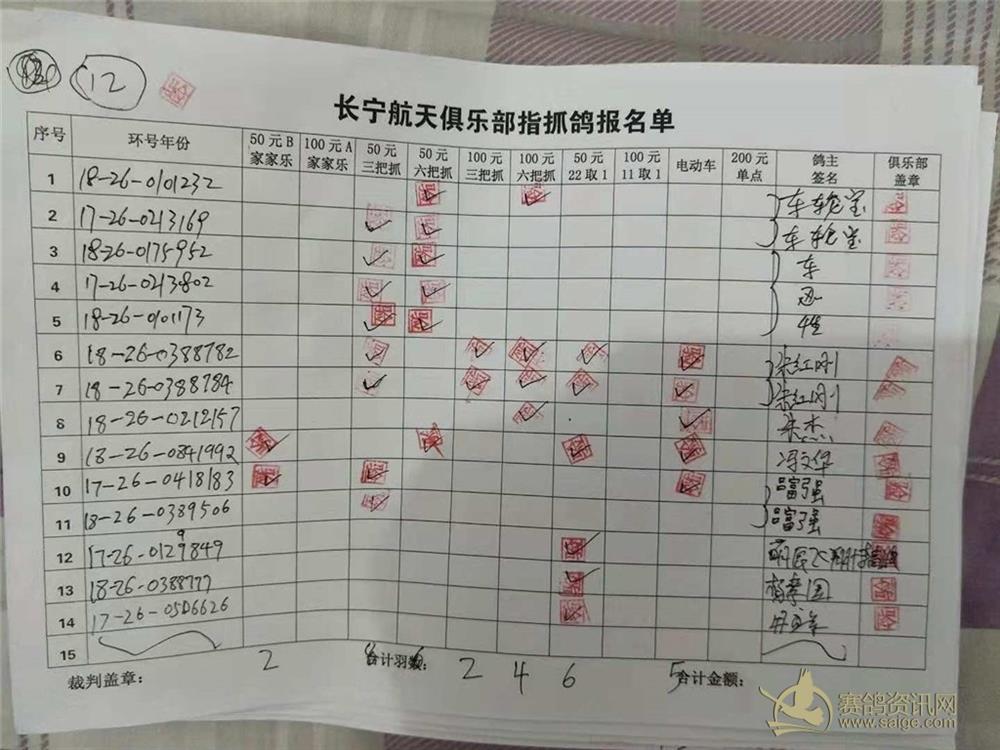 12
长宁航天俱乐部指抓鸽报名单
序号 环号年份 50元B家家乐 100元A家家乐 50元三把抓 50元六把抓 100元三把抓 100元六把抓 50元22取1 100元11取1 电动车 200元单点 鸽主签名 俱乐部盖章
1 18-26-0101232 ✓ ✓ 车轮宝
2 17-26-0213169 ✓ ✓ 车轮宝
3 18-26-0175952 ✓ ✓ 车
4 17-26-0213802 ✓ ✓
5 18-26-0101173 ✓ ✓
6 18-26-0388782 ✓ ✓ ✓ ✓ ✓ 朱红刚
7 18-26-0388784 ✓ ✓ ✓ ✓ ✓ 朱红刚
8 18-26-0212157 ✓ ✓ 朱杰
9 18-26-0841992 ✓ ✓ ✓ ✓ 冯文华
10 17-26-0418183 ✓ ✓ ✓ 吕富强
11 18-26-0389506 ✓ 吕富强
12 17-26-0129849 ✓
9
13 18-26-0388777 ✓
14 17-26-0506626 ✓
15
2 合计羽数: 2 4 6 5 合计金额:
裁判盖章:
赛鸽资讯网
www.saigc.com